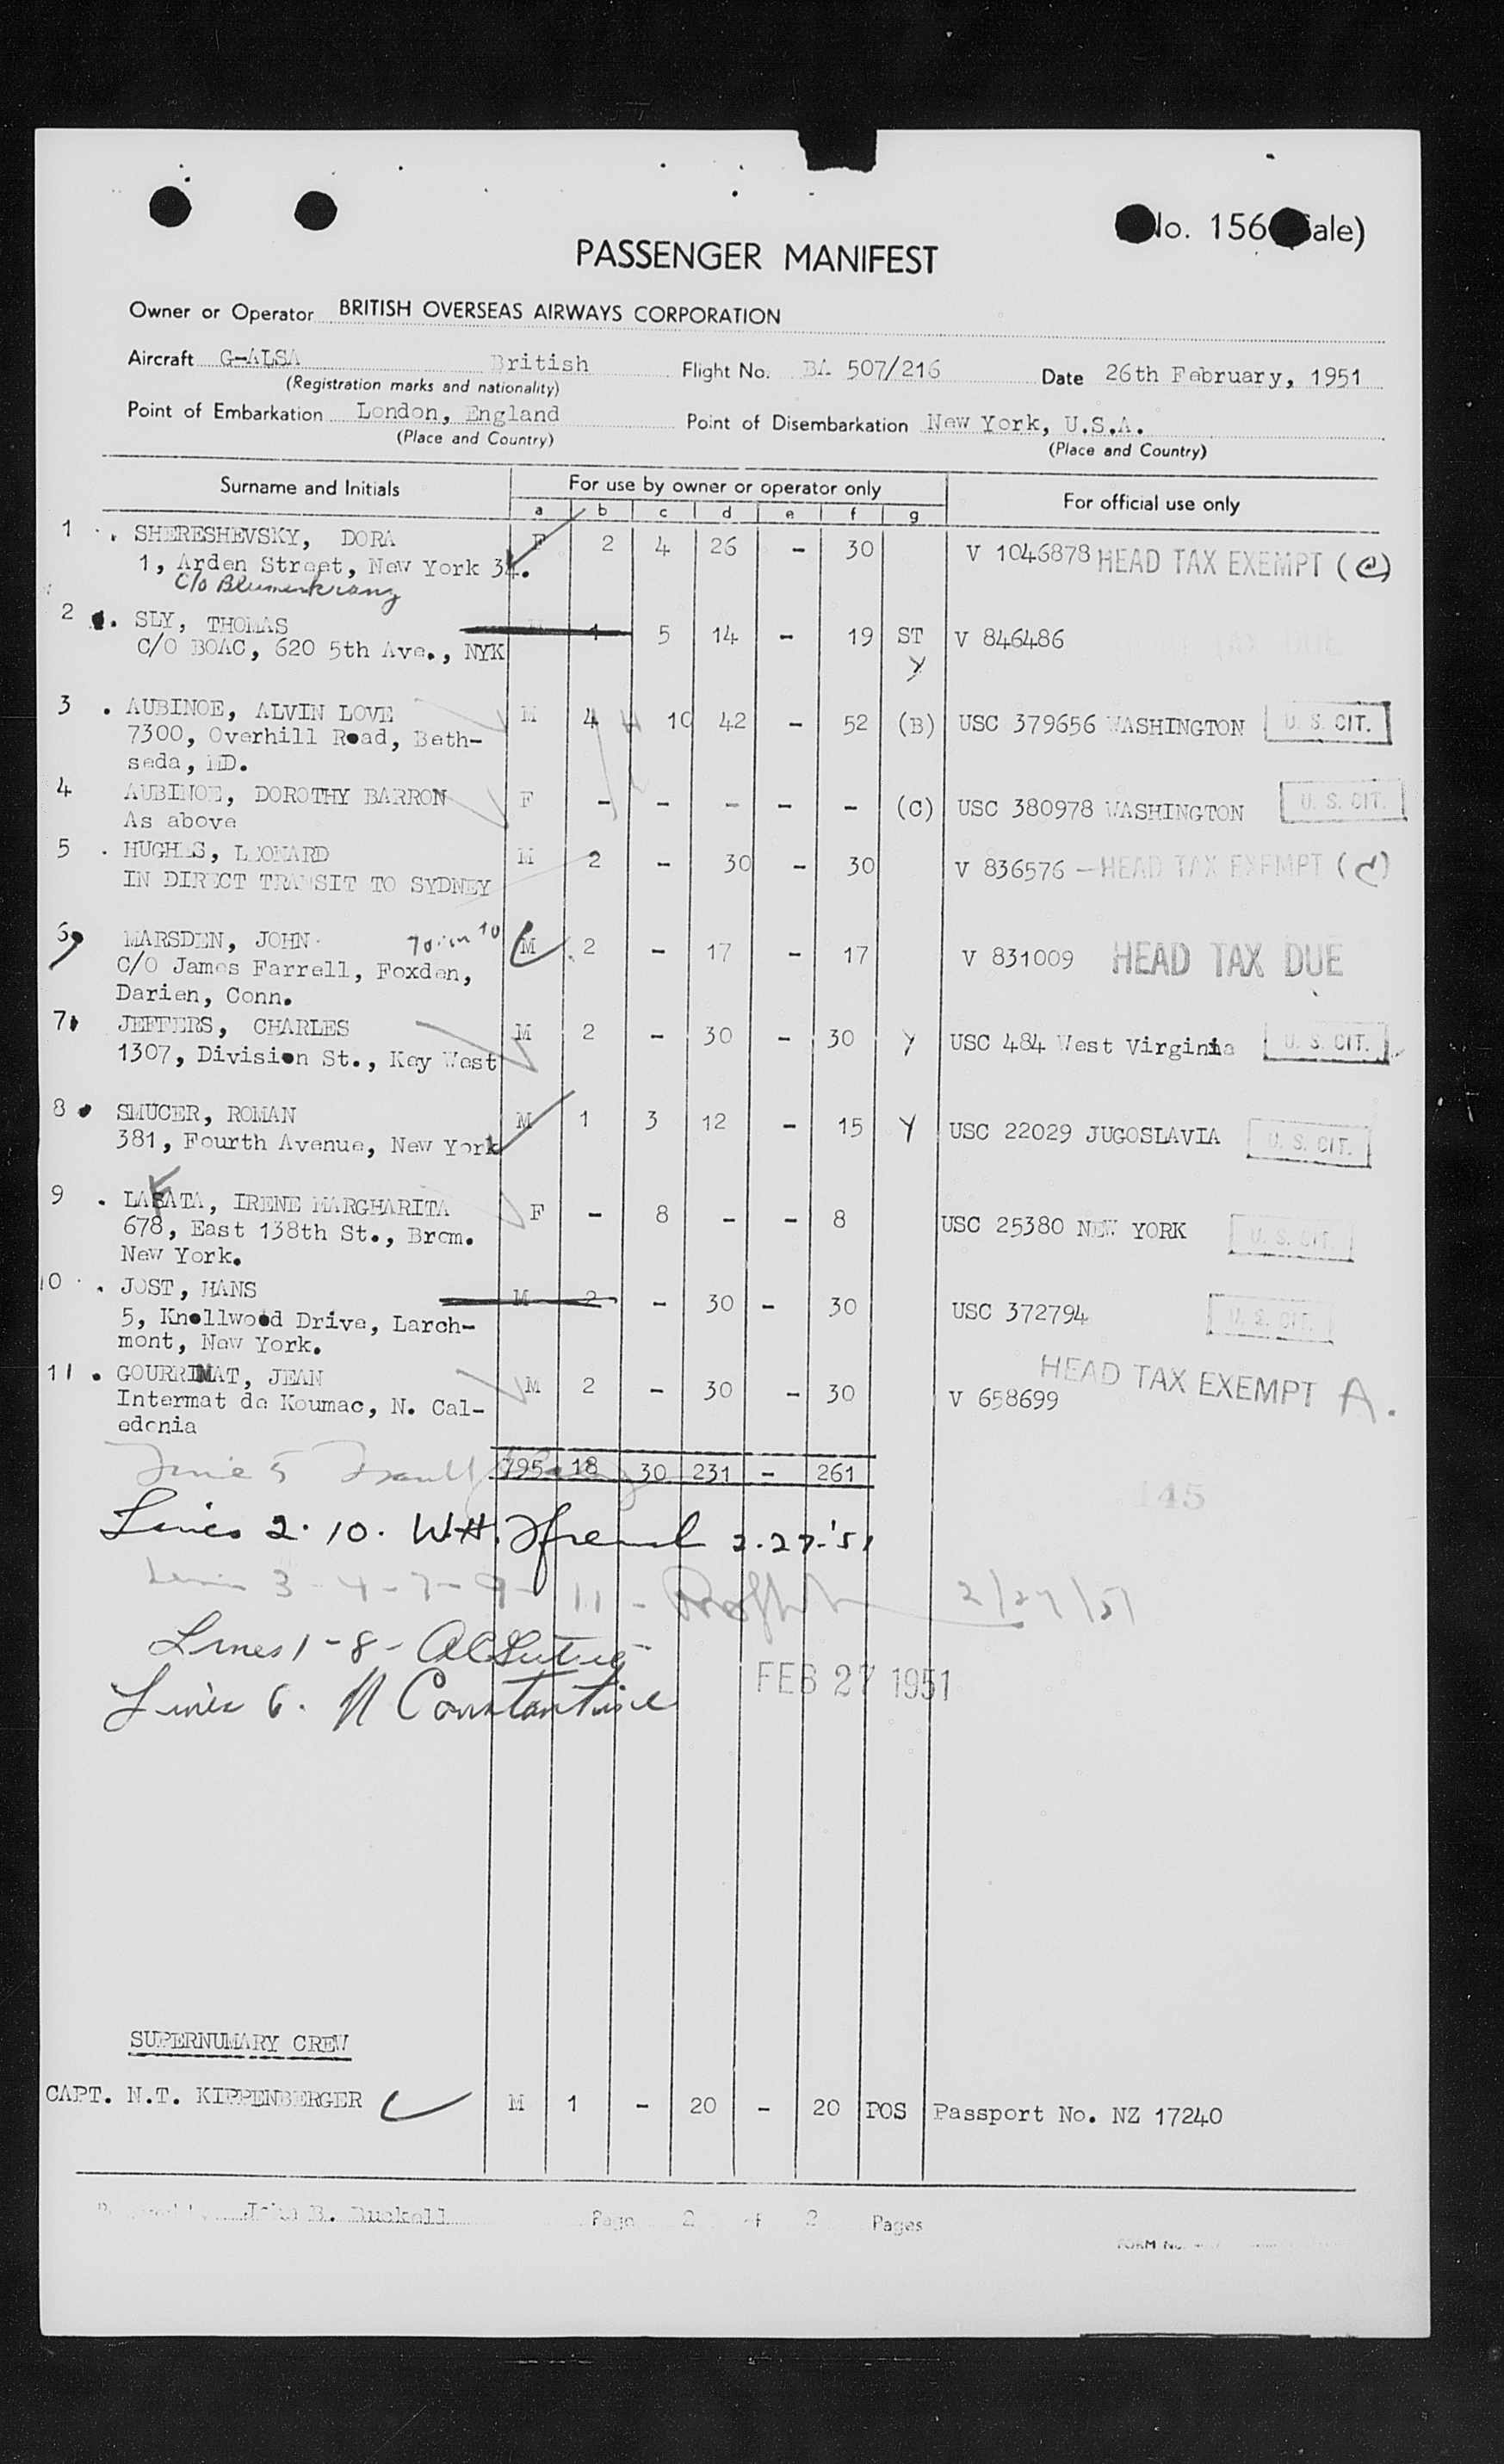 No. 156 ale)
PASSENGER MANIFEST
Owner or Operator BRITISH OVERSEAS AIRWAYS CORPORATION
Aircraft G-ALSA British Flight No. BA 507/216 Date 26th February, 1951
(Registration marks and nationality)
Point of Embarkation London, England Point of Disembarkation New York, U.S.A.
(Place and Country) (Place and Country)
Surname and Initials For use by owner or operator only For official use only
a b c d e f g
1 . SHERESHEVSKY, DORA F 2 4 26 - 30 V 1046878 HEAD TAX EXEMPT (c)
1, Arden Street, New York 34.
C/o Blumenkranz
2 . SLY, THOMAS M 1 5 14 - 19 ST V 846486
C/O BOAC, 620 5th Ave., NYK Y
3 . AUBINOE, ALVIN LOVE M 4 4 10 42 - 52 (B) USC 379656 WASHINGTON U. S. CIT.
7300, Overhill Road, Beth-
seda, MD.
4 AUBINOE, DOROTHY BARRON F - - - - - (C) USC 380978 WASHINGTON U. S. CIT.
As above
5 . HUGHES, LEONARD M 2 - 30 - 30 V 836576 - HEAD TAX EXEMPT (d)
IN DIRECT TRANSIT TO SYDNEY
6 MARSDEN, JOHN. M 2 - 17 - 17 V 831009 HEAD TAX DUE
C/O James Farrell, Foxden,
Darien, Conn.
7 JEFFERS, CHARLES M 2 - 30 - 30 Y USC 484 West Virginia U. S. CIT.
1307, Division St., Key West
8 SMUCER, ROMAN M 1 3 12 - 15 Y USC 22029 JUGOSLAVIA U. S. CIT.
381, Fourth Avenue, New York
9 . LAFATA, IRENE MARGHARITA F - 8 - - 8 USC 25380 NEW YORK U. S. CIT.
678, East 138th St., Brom.
New York.
10 . JOST, HANS M 2 - 30 - 30 USC 372794 U. S. CIT.
5, Knollwood Drive, Larch-
mont, New York.
11 . GOURRIMAT, JEAN M 2 - 30 - 30 V 658699 HEAD TAX EXEMPT A.
Intermat de Koumac, N. Cal-
edonia
795 18 30 231 - 261
145
Lines 2. 10. W.H. French 2.27.'51
Lines 3-4-7-9-11 - 2/27/51
Lines 1-8-
Lines 6. N Constantine
FEB 27 1951
SUPERNUMARY CREW
CAPT. N.T. KIPPENBERGER M 1 - 20 - 20 POS Passport No. NZ 17240
Page 2 of 2 Pages
FORM No.